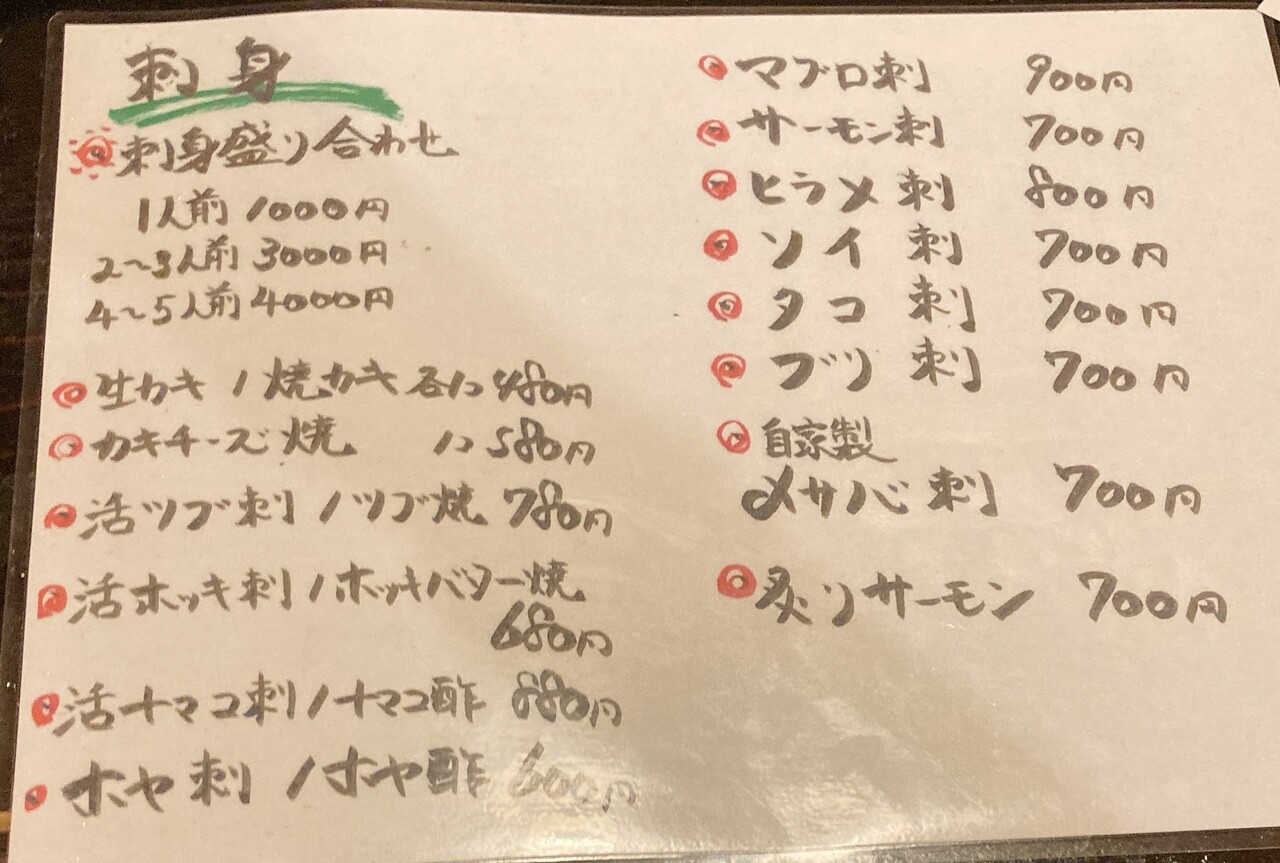 刺身
刺身盛り合わせ
1人前 1000円
2〜3人前 3000円
4〜5人前 4000円
生カキ / 焼カキ 各1コ 480円
カキチーズ焼 1コ 580円
活ツブ刺 / ツブ焼 780円
活ホッキ刺 / ホッキバター焼
680円
活ナマコ刺 / ナマコ酢 880円
ホヤ刺 / ホヤ酢 600円
マグロ刺 900円
サーモン刺 700円
ヒラメ刺 800円
ソイ刺 700円
タコ刺 700円
ブリ刺 700円
自家製
〆サバ刺 700円
炙りサーモン 700円